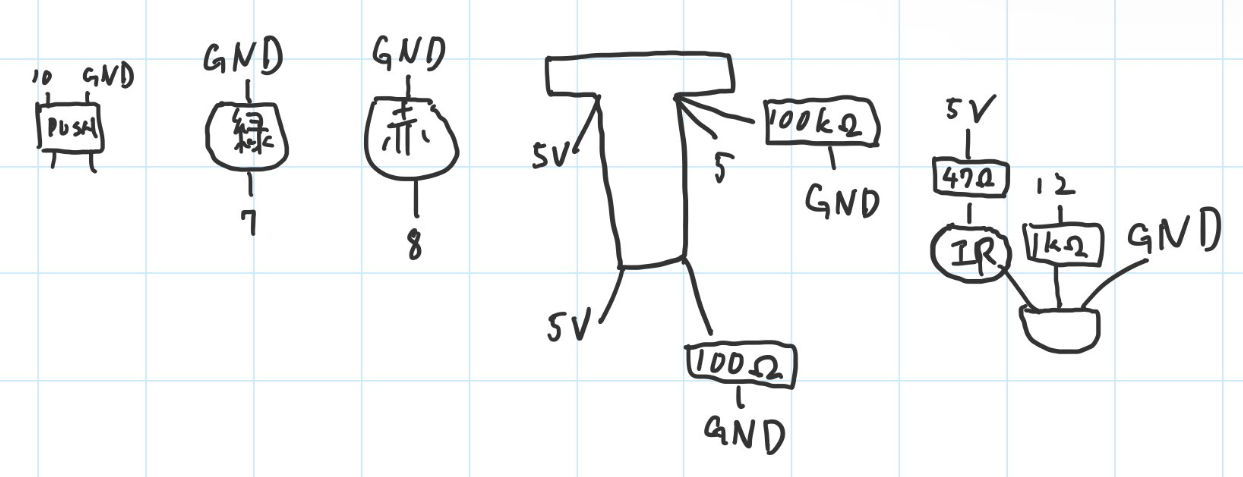 10 GND
PUSH
GND
緑
7
GND
赤
8
5V
5
100kΩ
GND
5V
100Ω
GND
5V
47Ω
IR
12
1kΩ
GND